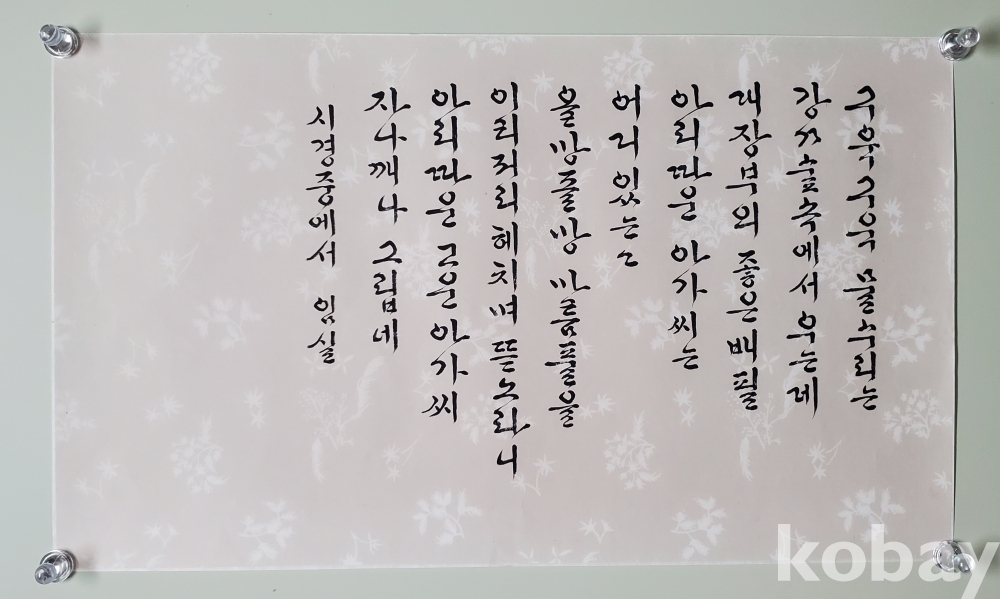 구우구우 물수리는
강가숲속에서우는데
대장부의 좋은배필
아리따운 아가씨는
어디 있는고
올망졸망 마름풀을
이리저리 헤치며 뜯노라니
아리따운 고운 아가씨
자나깨나 그립네
시경중에서 임실
kobay